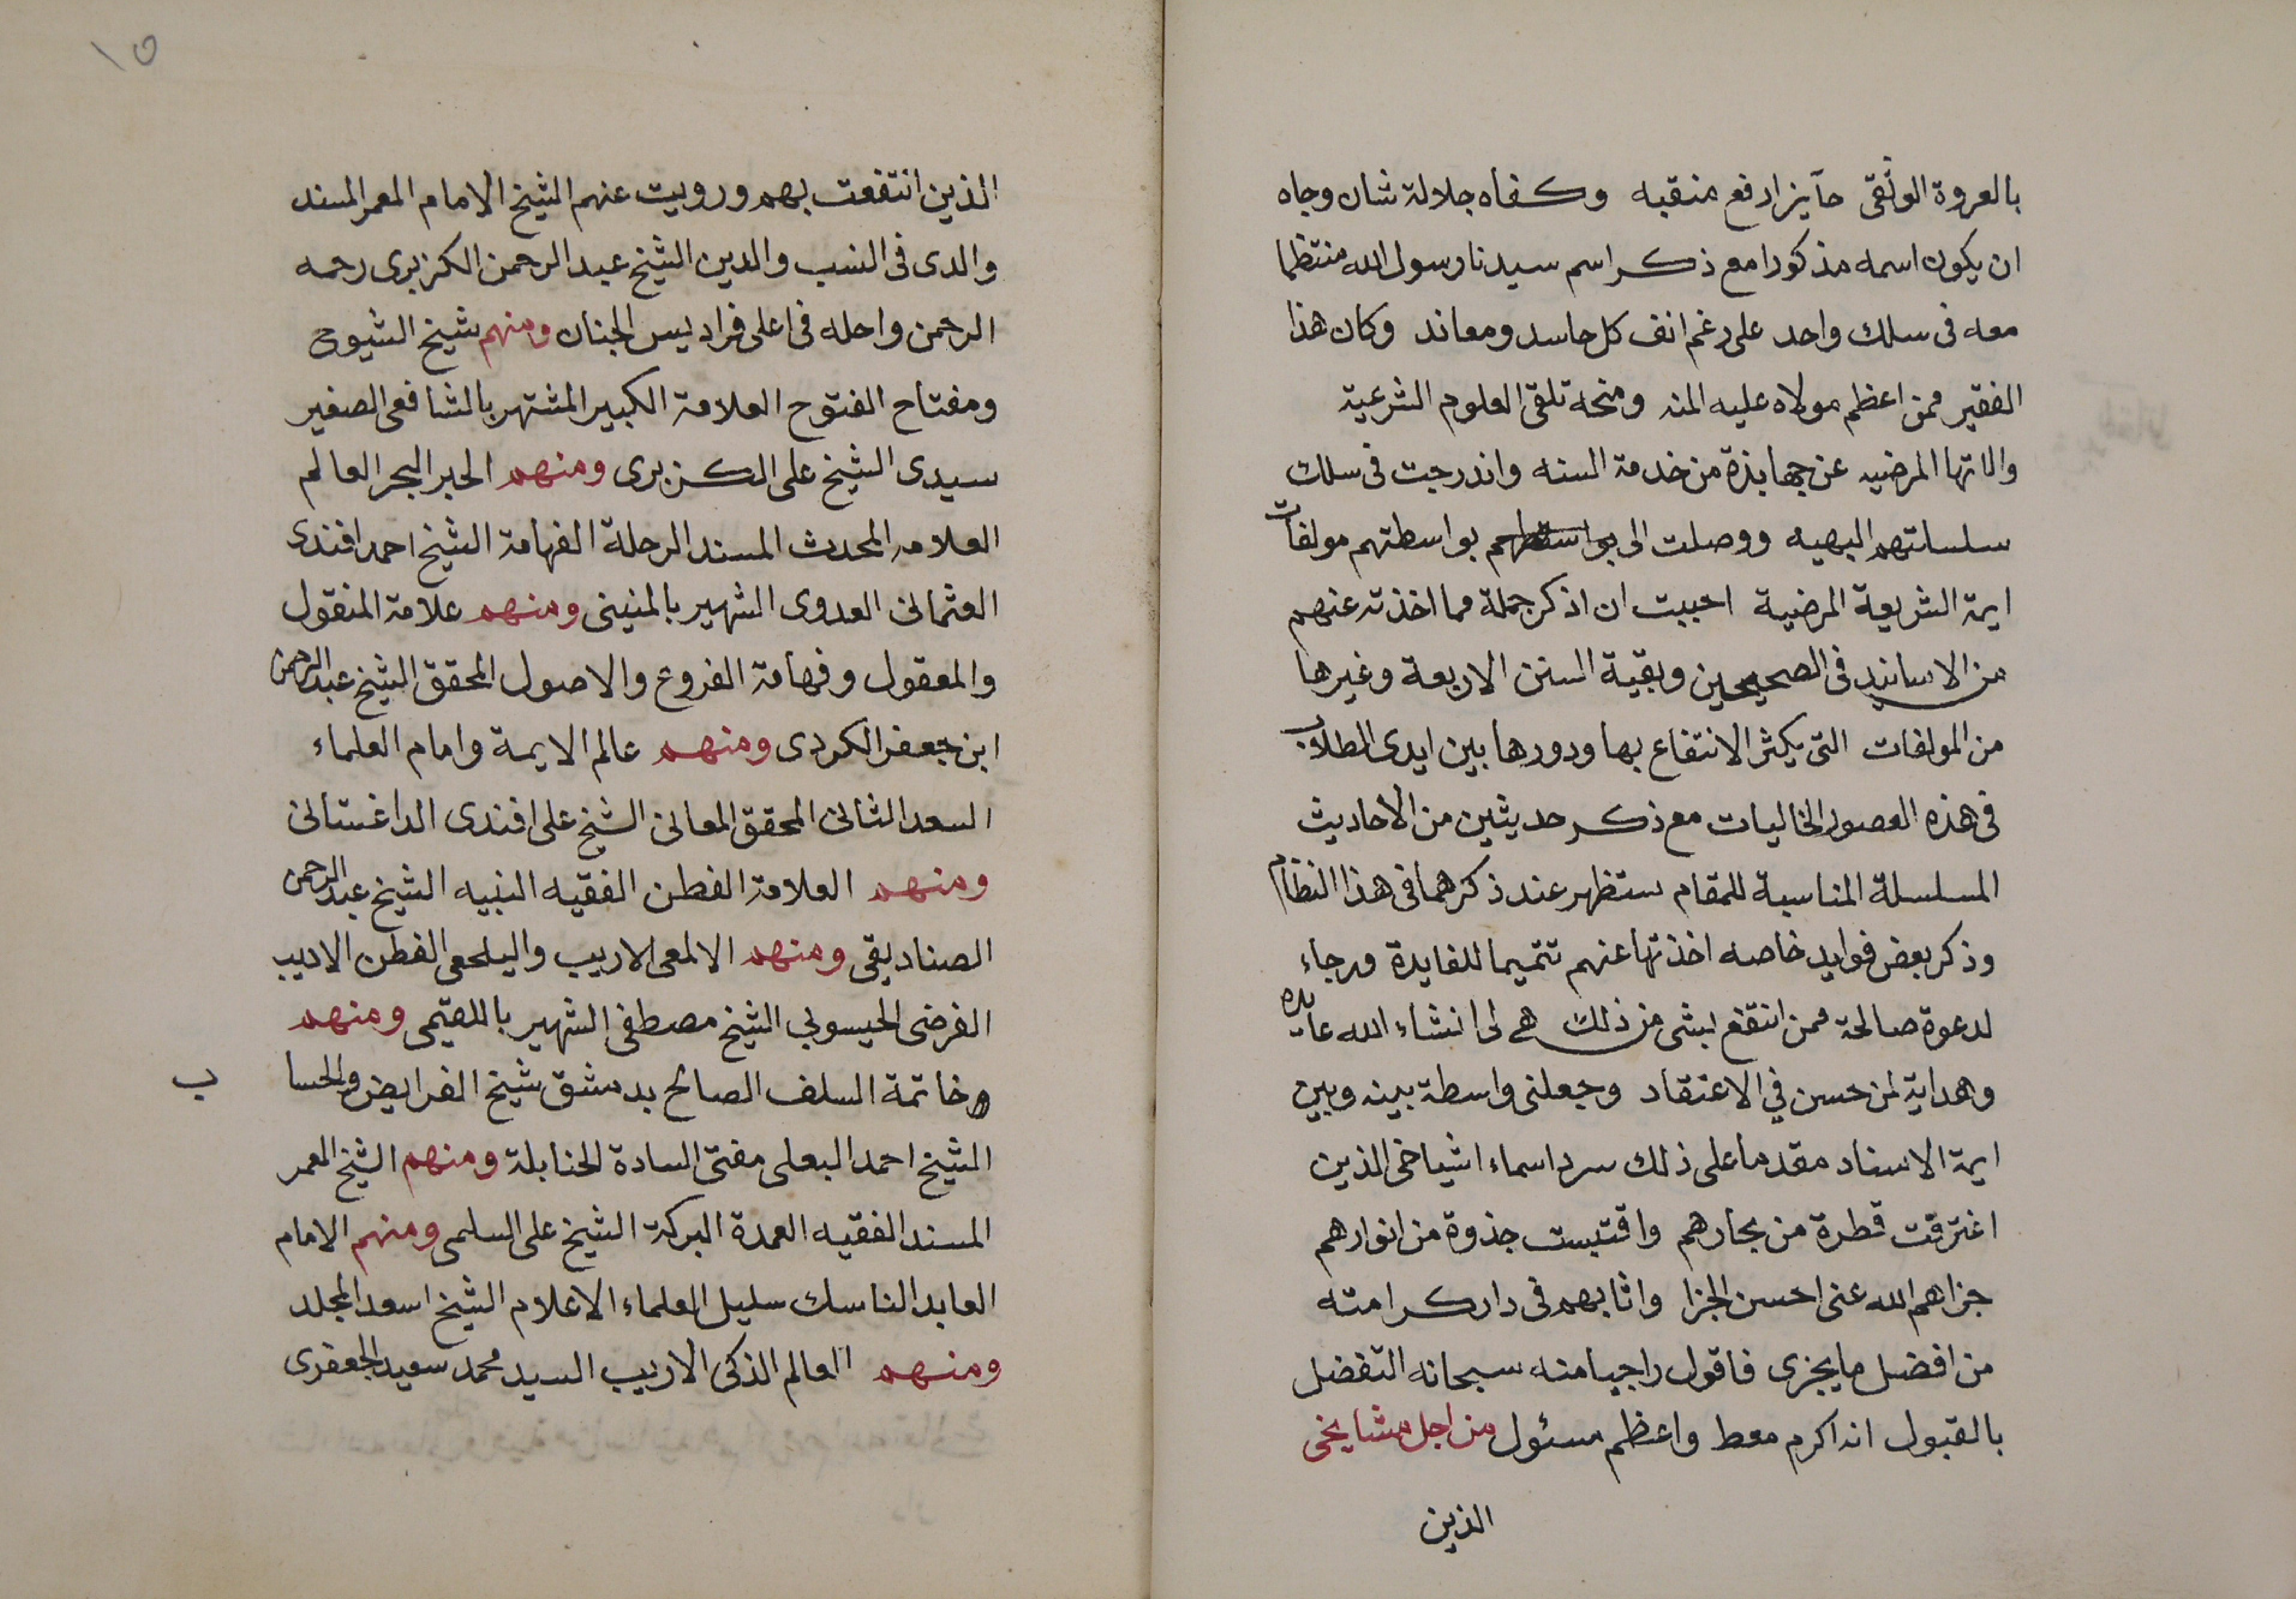 بالعروة الوثقى حآيزا رفع منقبه وكفاه جلالة شان وجاه
ان يكون اسمه مذكورا مع ذكر اسم سيدنا رسول الله منتظما
معه فى سلك واحد على رغم انف كل حاسد ومعاند وكان هذا
الفقير ممن اعظم مولاه عليه المنه ومنحه تلقى العلوم الشرعية
والاتها المرضيه عن جهابذة من خدمة السنه واندرجت فى سلك
سلسلتهم البهيه ووصلت الى بواسطتهم بواسطتهم مولفات
ايمة الشريعة المرضية احببت ان اذكر جملة مما اخذته عنهم
من الاسانيد فى الصحيحين وبقية السنن الاربعة وغيرها
من المولفات التى يكثر الانتفاع بها ودورها بين ايدى الطلاب
فى هذه العصور الخاليات مع ذكر حديثين من الاحاديث
المسلسلة المناسبة للمقام ستظهر عند ذكرهما فى هذا النظام
وذكر بعض فوايد خاصه اخذتها عنهم تتميما للفايدة ورجاء
لدعوة صالحة ممن انتفع بشى من ذلك هى لى انشاء الله عايده
وهداية لمن حسن في الاعتقاد وجعلنى واسطة بينه وبين
ايمة الاسناد مقدما على ذلك سرد اسماء اشياخى الذين
اغترفت قطرة من بحارهم واقتبست جذوة من انوارهم
جزاهم الله عنى احسن الجزا واثابهم فى دار كرامته
من افضل ما يجزى فاقول راجيا منه سبحانه التفضل
بالقبول انه اكرم معط واعظم مسئول من اجل مشايخى
الذين
١٥
الذين انتفعت بهم ورويت عنهم الشيخ الامام المعمر المسند
والدى فى النسب والدين الشيخ عبد الرحمن الكزبرى رحمه
الرحمن واحله فى اعلى فراديس الجنان ومنهم شيخ الشيوخ
ومفتاح الفتوح العلامة الكبير المشتهر بالشافعى الصغير
سيدى الشيخ على الكزبرى ومنهم الحبر البحر العالم
العلامه المحدث المسند الرحلة الفهامة الشيخ احمد افندى
العثمانى العدوى الشهير بالمنينى ومنهم علامة المنقول
والمعقول وفهامة الفروع والاصول المحقق الشيخ عبد الرحمن
ابن جعفر الكردى ومنهم عالم الايمة وامام العلماء
السعد الثانى المحقق المعانى الشيخ على افندى الداغستانى
ومنهم العلامة الفطن الفقيه النبيه الشيخ عبد الرحمن
الصناديقى ومنهم الالمعى الاريب واليلمعى الفطن الاديب
الفرضى الحيسوبي الشيخ مصطفى الشهير باللقيمى ومنهم
خاتمة السلف الصالح بدمشق شيخ الفرايض والحساب
الشيخ احمد البعلى مفتى السادة الحنابلة ومنهم الشيخ المعمر
المسند الفقيه العمدة البركة الشيخ على السلمى ومنهم الامام
العابد الناسك سليل العلماء الاعلام الشيخ اسعد المجلد
ومنهم العالم الذكى الاريب السيد محمد سعيد الجعفرى